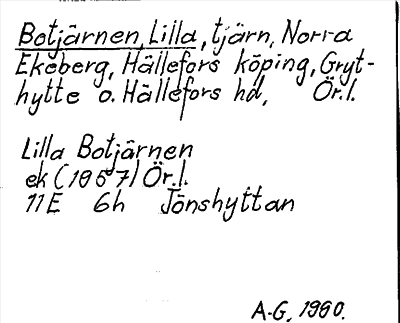 Botjärnen, Lilla, tjärn, Norra
Ekeberg, Hällefors köping, Gryt-
hytte o. Hällefors hd, Ör.l.
Lilla Botjärnen
ek (1857) Ör.l.
11E 6h Jönshyttan
A-G, 1980.